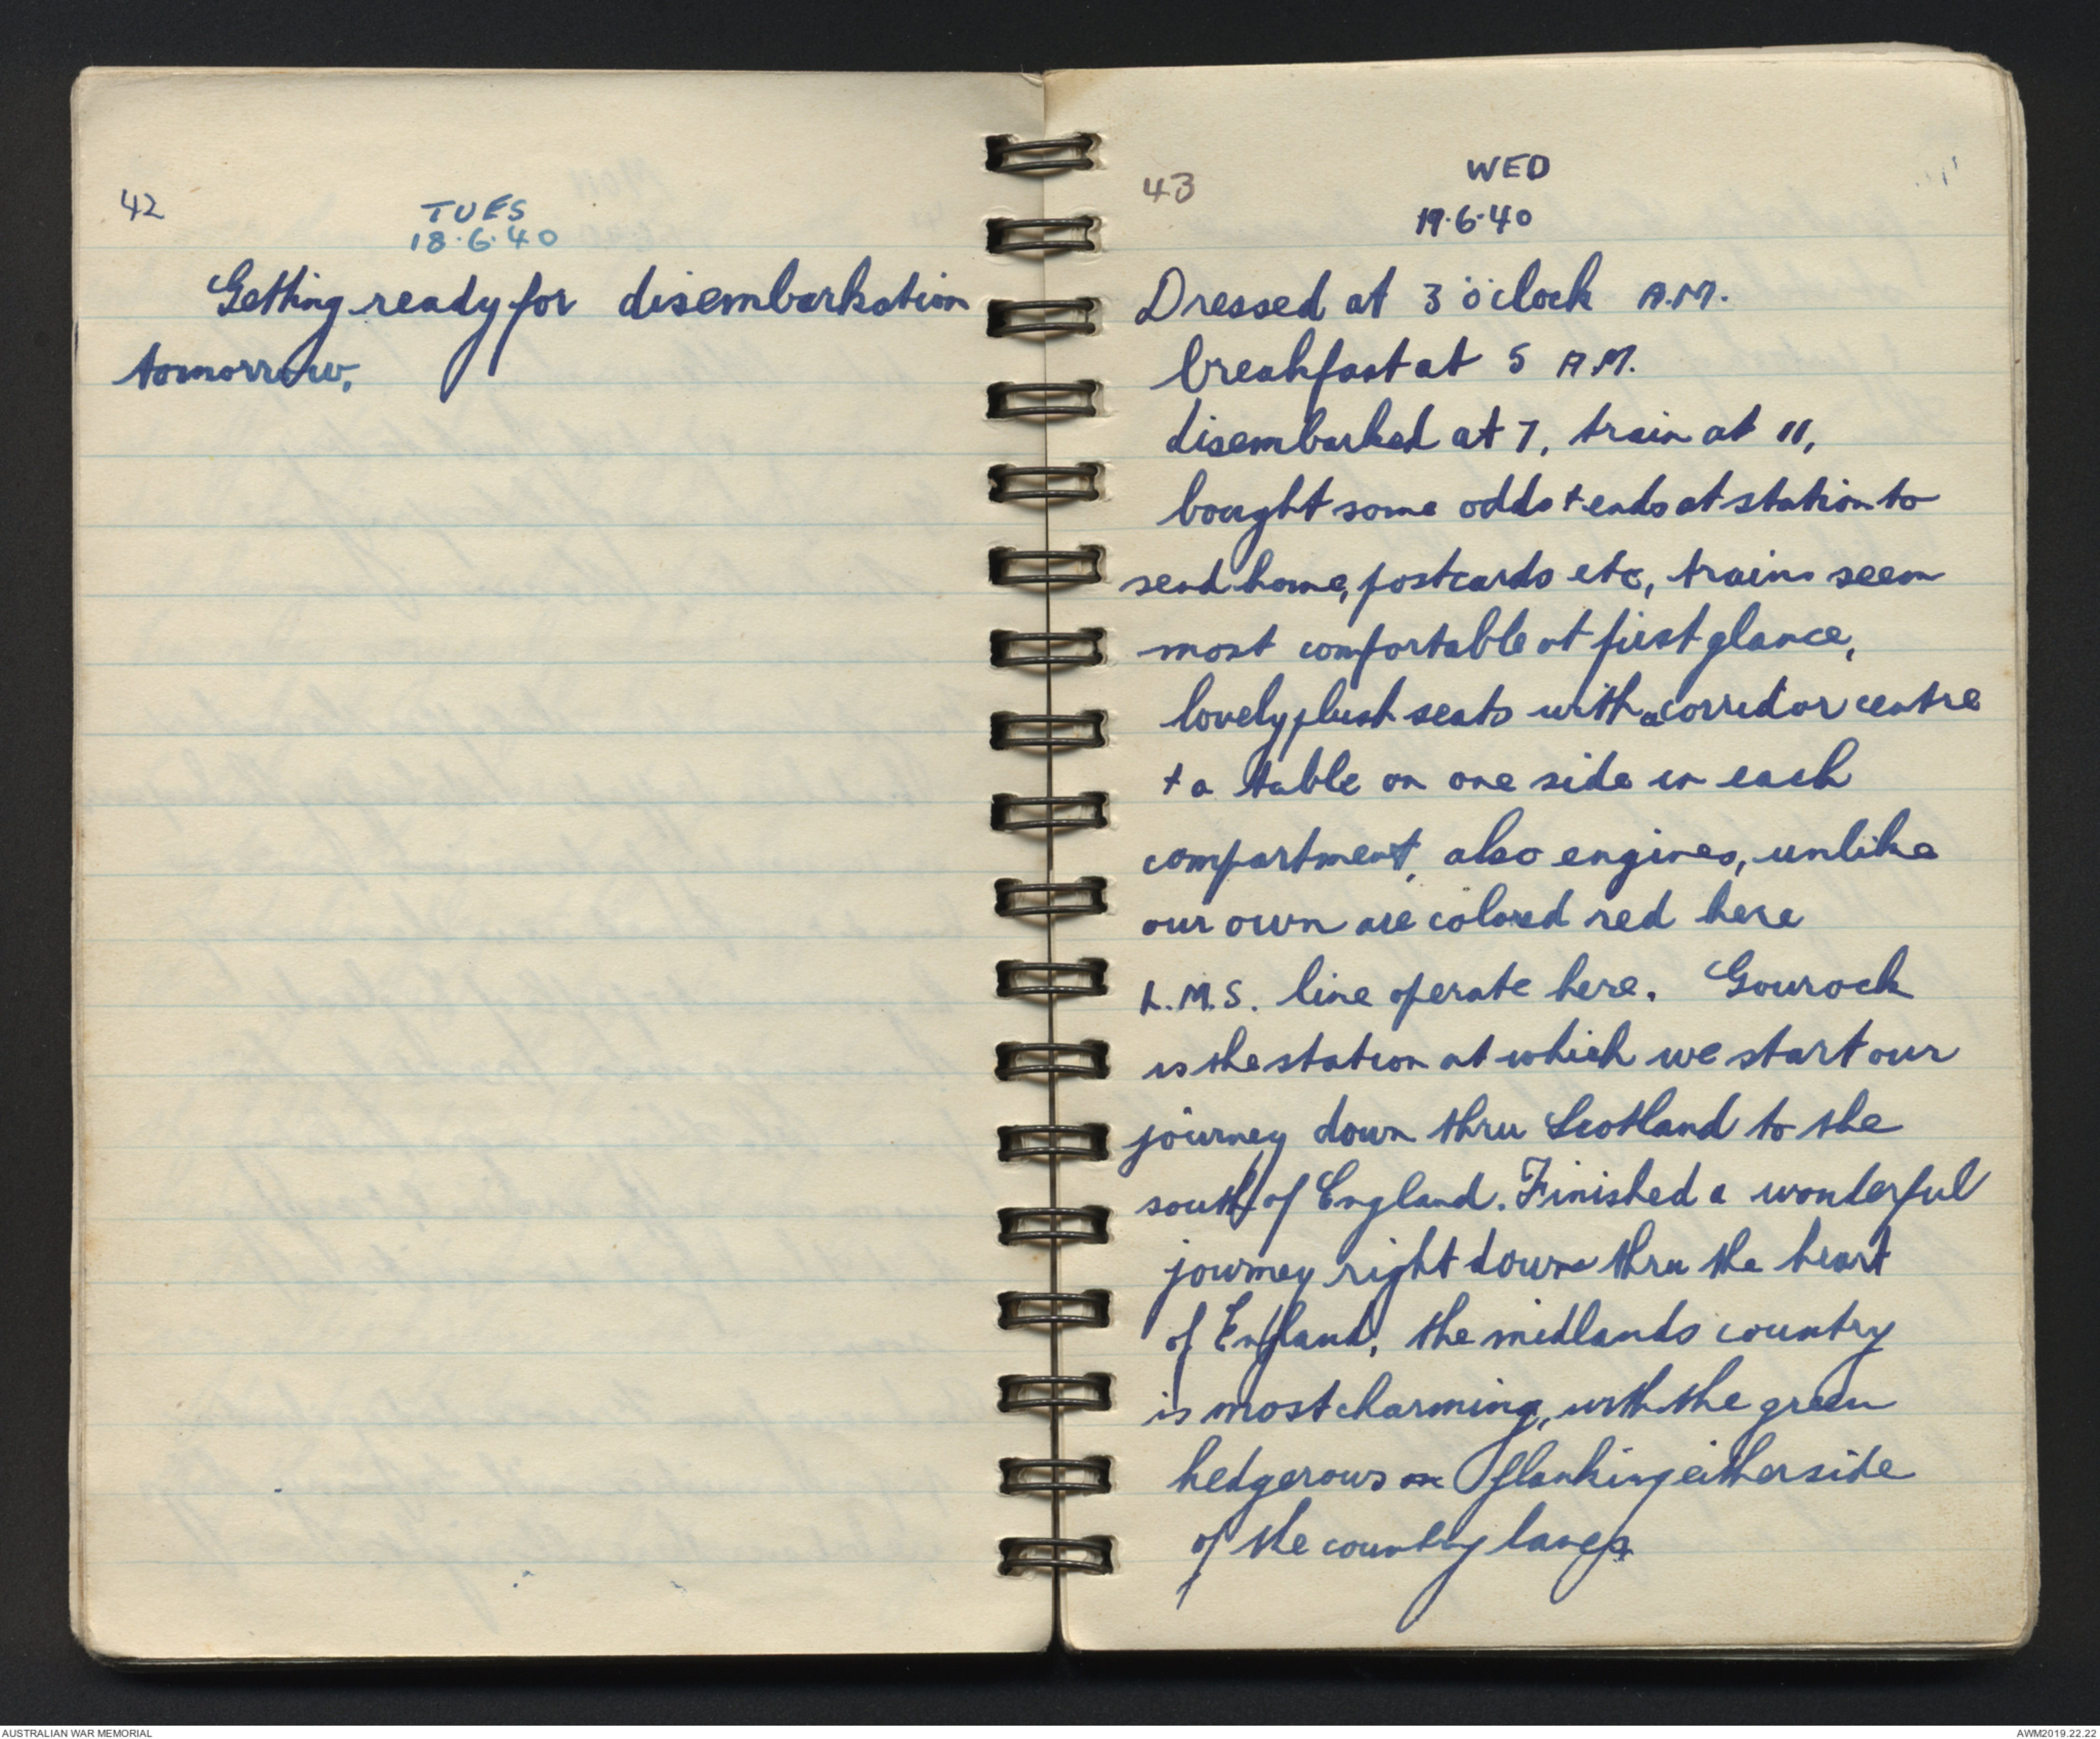 42
TUES
18.6.40
Getting ready for disembarkation
tomorrow.
43
WED
19.6.40
Dressed at 3 o'clock A.M.
breakfast at 5 A.M.
disembarked at 7, train at 11,
bought some odds + ends at station to
send home, postcards etc, trains seem
most comfortable at first glance,
lovely plush seats with a corridor centre
+ a table on one side in each
compartment, also engines, unlike
our own are colored red here
L.M.S. line operate here. Gourock
is the station at which we start our
journey down thru Scotland to the
south of England. Finished a wonderful
journey right down thru the heart
of England, the midlands country
is most charming, with the green
hedgerows flanking either side
of the country lanes
AUSTRALIAN WAR MEMORIAL
AWM2019.22.22